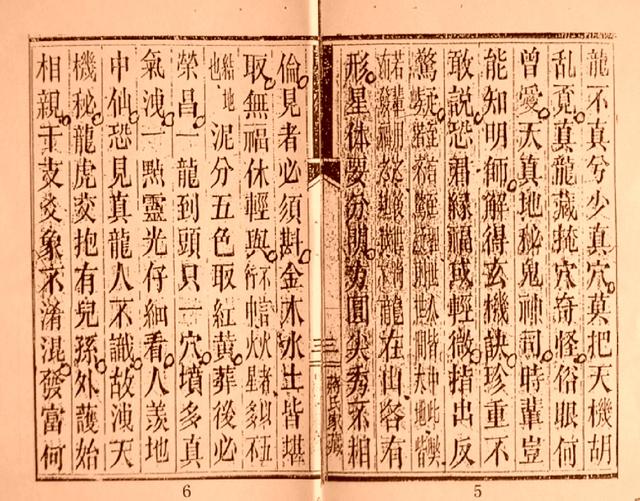 龍不真兮少真穴莫把天機胡
乱覓真龍藏掩穴奇怪俗眼何
曾愛天真地秘鬼神司時輩豈
能知明師解得玄機訣珍重不
敢說恐君緣福或輕微指出反
驚疑
龍在山容有
形星体要分明方圓尖秀不相
三
倫見者必須斟金木水土皆堪
取無福休輕與
結地也泥分五色取紅黃葬後必
榮昌一龍到頭只一穴墳多真
氣洩一點靈光仔細看人羨地
中仙恐見真龍人不識故洩天
機秘龍虎交抱有兒孫外護始
相親干支爻象不淆混發富何
6
5